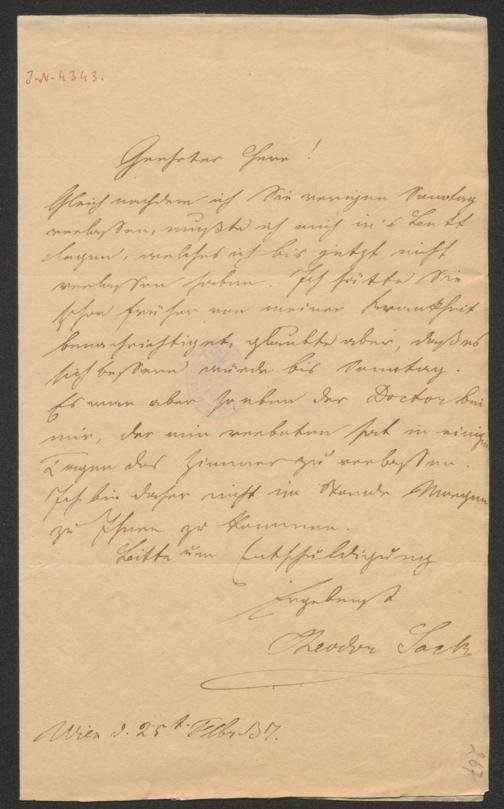 J-N-4343.
Geehrter Herr!
Gleich nachdem ich Sie vorigen Sonntag
verlassen, mußte ich mich in's Bett
legen, welches ich bis jetzt nicht
verlassen habe. Ich hätte Sie
schon früher von meiner Krankheit
benachrichtiget, glaubte aber, daß es
sich bessern würde bis Sonntag.
Es war aber soeben der Doctor bei
mir, der mir verboten hat in einigen
Tagen das Zimmer zu verlassen.
Ich bin daher nicht im Stande Morgen
zu Ihnen zu kommen.
Bitte um Entschuldigung
Ergebenst
Theodor Sack
Wien d. 25t. Feber 37.